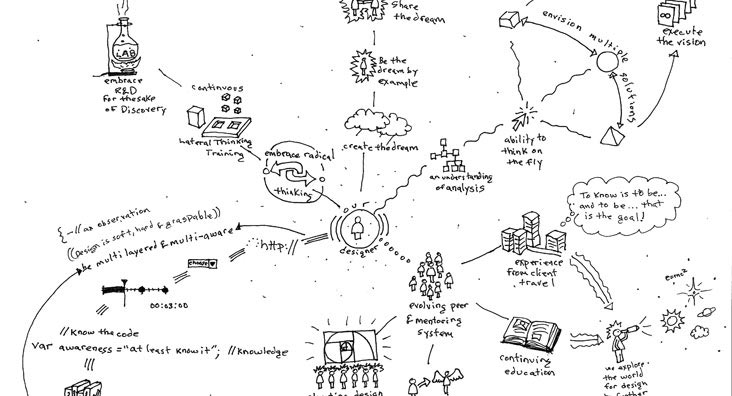 Share
the dream
envision multiple solutions
execute
the vision
LAB
embrace
R&D
for the sake
of Discovery
continuous
Lateral Thinking
Training
Be the
dream by
example
create the dream
ability to
think on
the fly
embrace radical
thinking
an understanding
of analysis
our
designer
{ —// an observation
((Design is soft, hard & graspable))
be multi layered & multi-aware
http://
choose
00:03:00
// Know the code
var awareness = "at least know it"; // Knowledge
To know is to be...
and to be... that
is the goal!
experience
from client
travel
evolving peer
& mentoring
system
continuing
education
we explore
the world
for design
by further